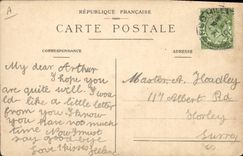 RÉPUBLIQUE FRANÇAISE
CARTE POSTALE
CORRESPONDANCE
ADRESSE
A
My dear Arthur
I hope you
are quite well. I would
like a little letter
from you I know
you have not much
time Now I must
say good bye.
Love
Master A. Hoadley
117 Albert Rd
Horley
Surrey